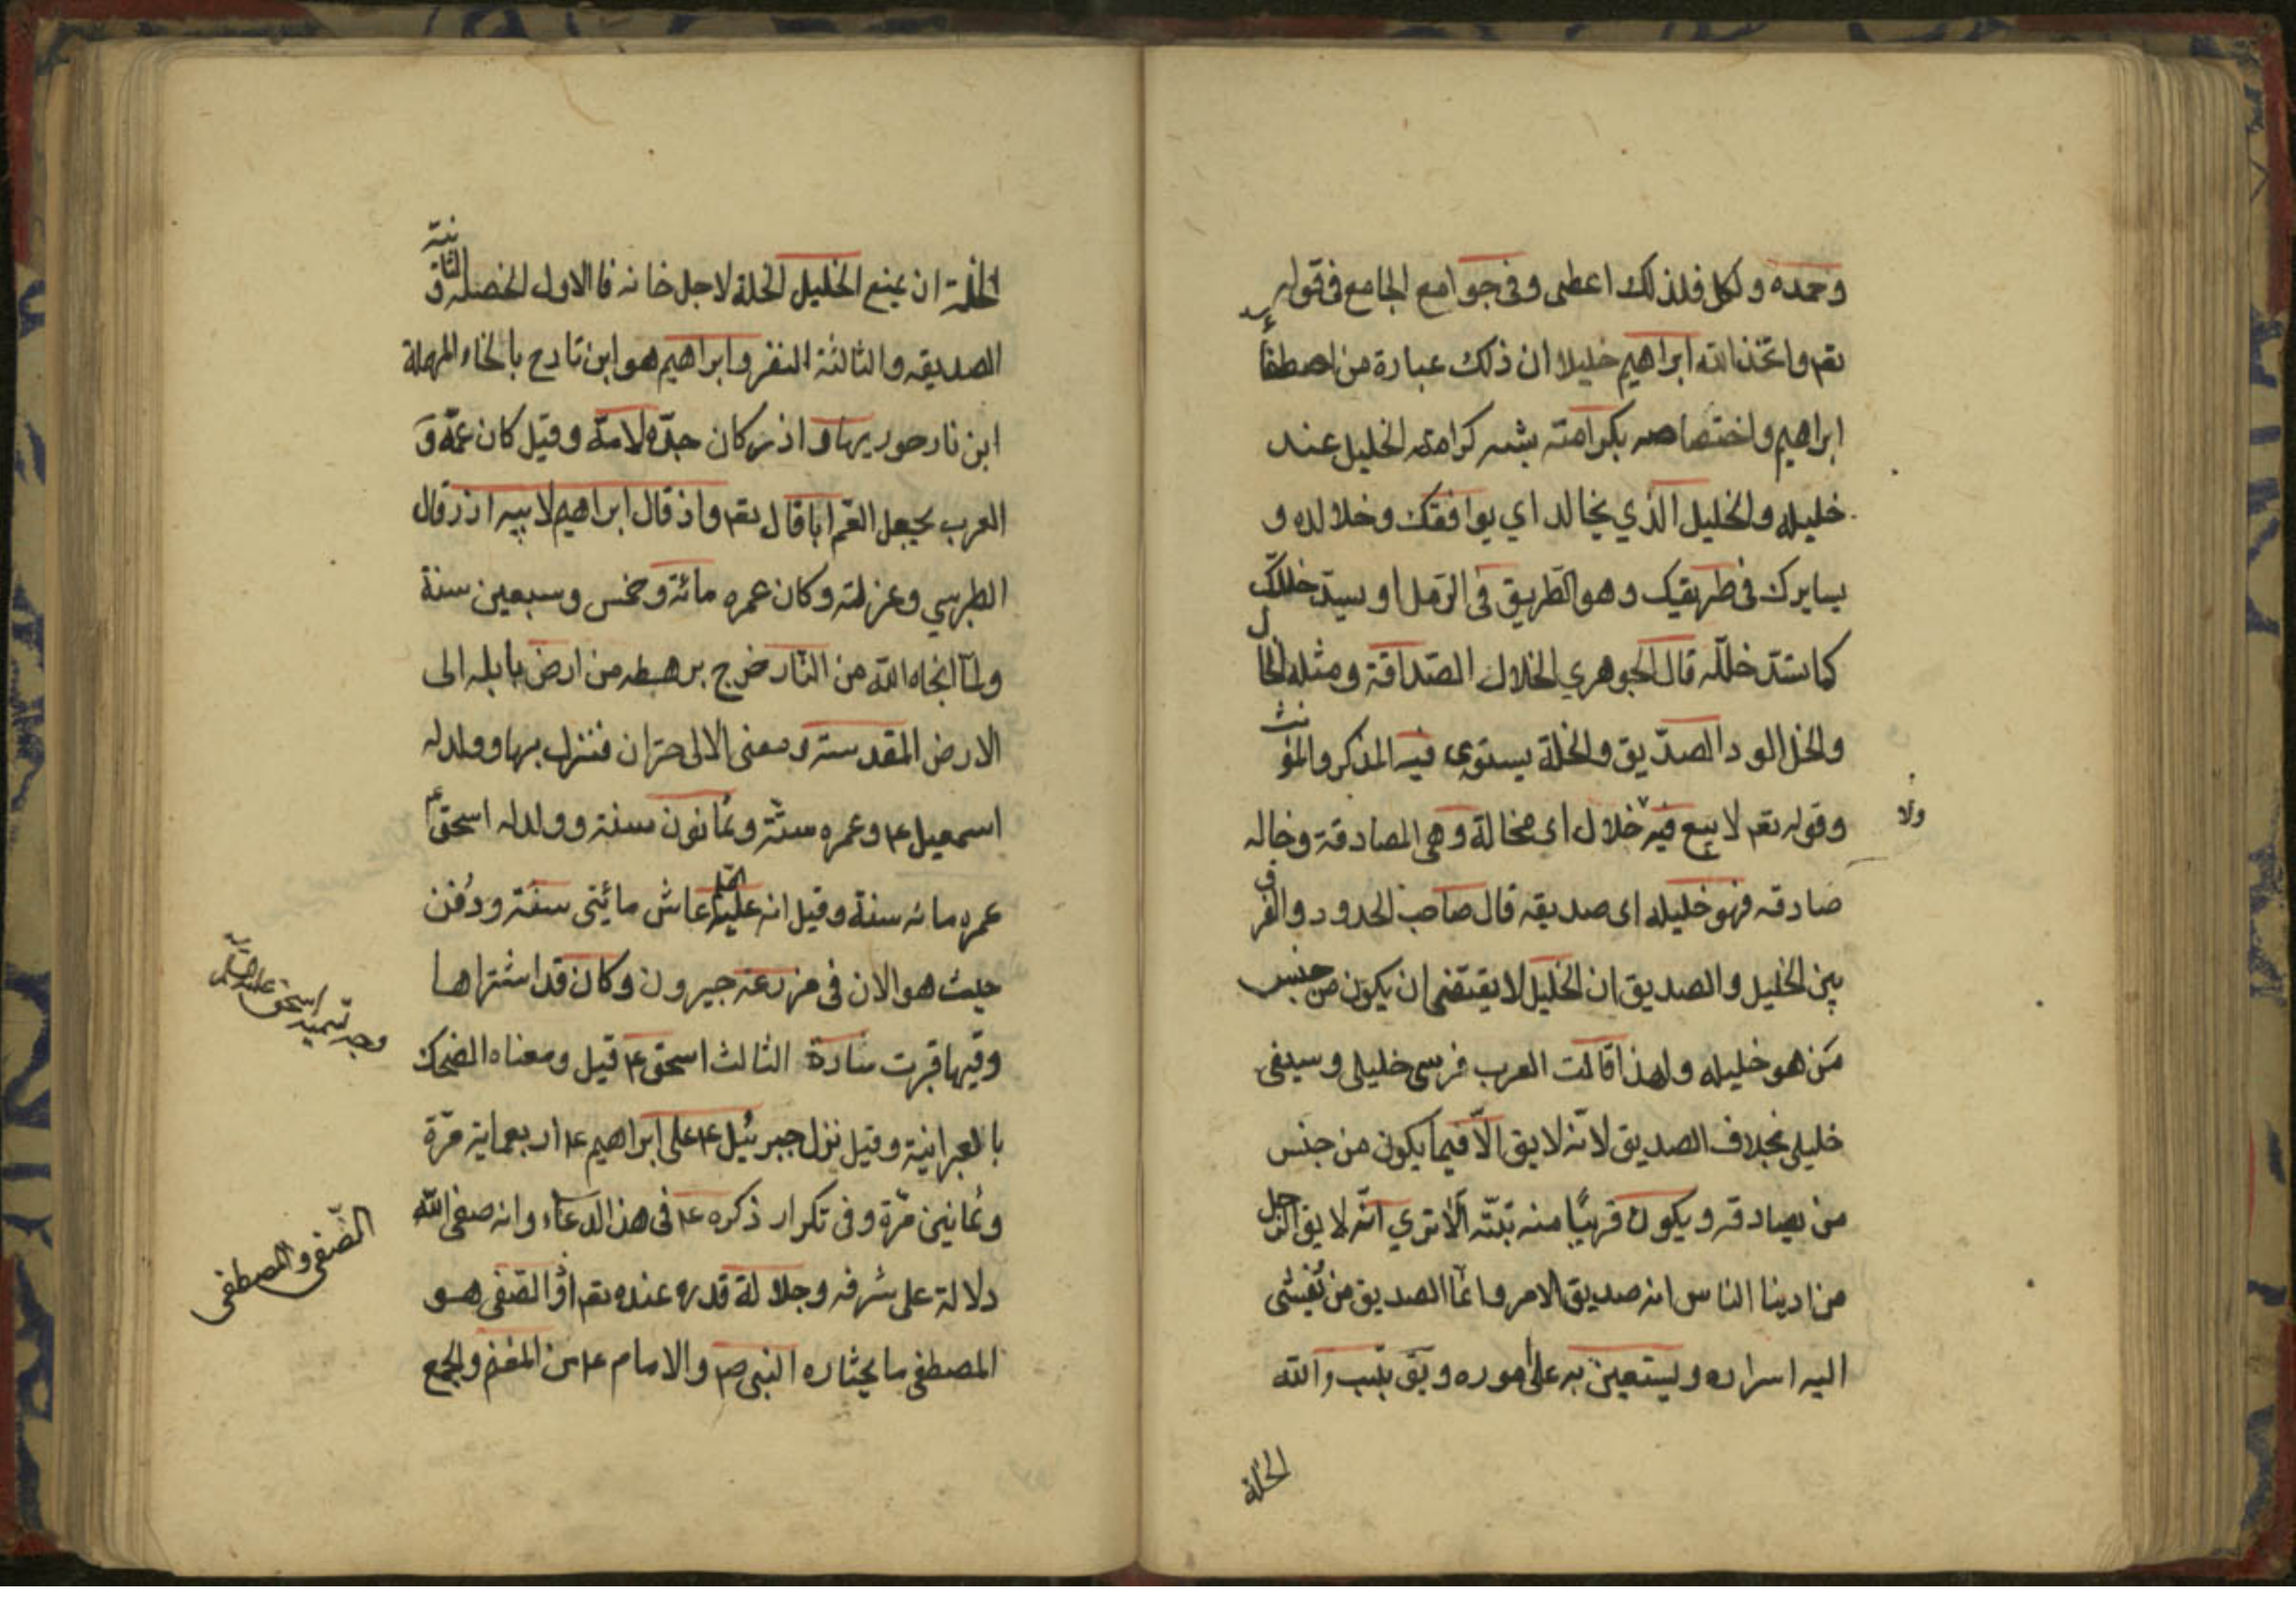 وحمده ولكل فلذلك اعطى وفي جوامع الجامع في قوله
تعم واتخذ الله ابراهيم خليلا ان ذلك عبارة من اصطفائه
ابراهيم واختصاصه بكرامته يشبه كرامة الخليل عند
خليله والخليل الذي يخالك اي يوافقك وخلالك و
يسايرك في طريقك وهو الطريق في الرمل او يسد خللك
كما تسد خلله قال الجوهري الخلال الصداقة ومثله الخال
والخل الود الصديق والخلة يستوي فيه المذكر والمؤنث
وقوله تعم لا بيع فيه ولا خلال اى مخالة وهي المصادقة وخاله
صادقه فهو خليله اى صديقه قال صاحب الحدود والفرق
بين الخليل والصديق ان الخليل لا يقتضى ان يكون من جنس
من هو خليله ولهذا قالت العرب فرسى خليلى وسيفى
خليلى بخلاف الصديق لانه لا يق الا فيما يكون من جنس
من يصادقه ويكون قريبا منه بتة الا تري انه لا يق الرجل
من ادينا الناس انه صديق الامر وانما الصديق من يفشى
اليه اسراره ويستعين به على اموره ويق والله
الخلة
الخلة ان يمنع الخليل الخلة لاجل خانه فالاول الخصلة والثانية
الصديقه والثالثة الفقر وابراهيم هو ابن تارح بالخاء المهملة
ابن نارحور وازر كان جده لامه وقيل كان عمه و
العرب يجعل العم ابا قال تعم واذ قال ابراهيم لابيه ازر قال
الطبرسي وكان عمره مائة وخمس وسبعين سنة
ولما انجاه الله من النار خرج برهطه من ارض بابل الى
الارض المقدسة ومعنى الا الى حران فنزل بها وولد له
اسمعيل ع وعمره ستة وثمانون سنة وولد له اسحق ع
عمره مائه سنة وقيل انه عليه السلم عاش مائتى سنة ودفن
حيث هو الان في مزرعة جيرون وكان قد اشتراها
وفيها قبرت سارة الثالث اسحق ع قيل ومعناه الضحاك
بالعبرانية وقيل نزل جبرئيل ع على ابراهيم ع اربعماية مرة
وثمانين مرة وفي تكرار ذكره ع في هذا الدعاء وانه صفى الله
دلالة على شرفه وجلالة قدره عنده تعم الصفى هو
المصطفى ما يختاره النبى ص والامام ع من المغنم والجمع
وجه تسميه اسحق عليه السلم
الصفى والمصطفى